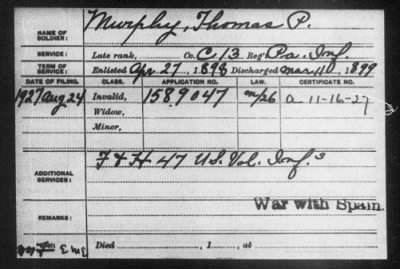 NAME OF SOLDIER: Murphy, Thomas P.
SERVICE: Late rank, Co. C, 13 Reg't Pa. Inf.
TERM OF SERVICE: Enlisted Apr 27, 1898 Discharged Mar 11, 1899
DATE OF FILING. CLASS. APPLICATION NO. LAW. CERTIFICATE NO.
1927 Aug 24 Invalid, 1589047 a 11-16-27
Widow,
Minor,
ADDITIONAL SERVICES: F & H 47 U.S. Vol. Inf.
War with Spain.
REMARKS:
Died , 1 , at